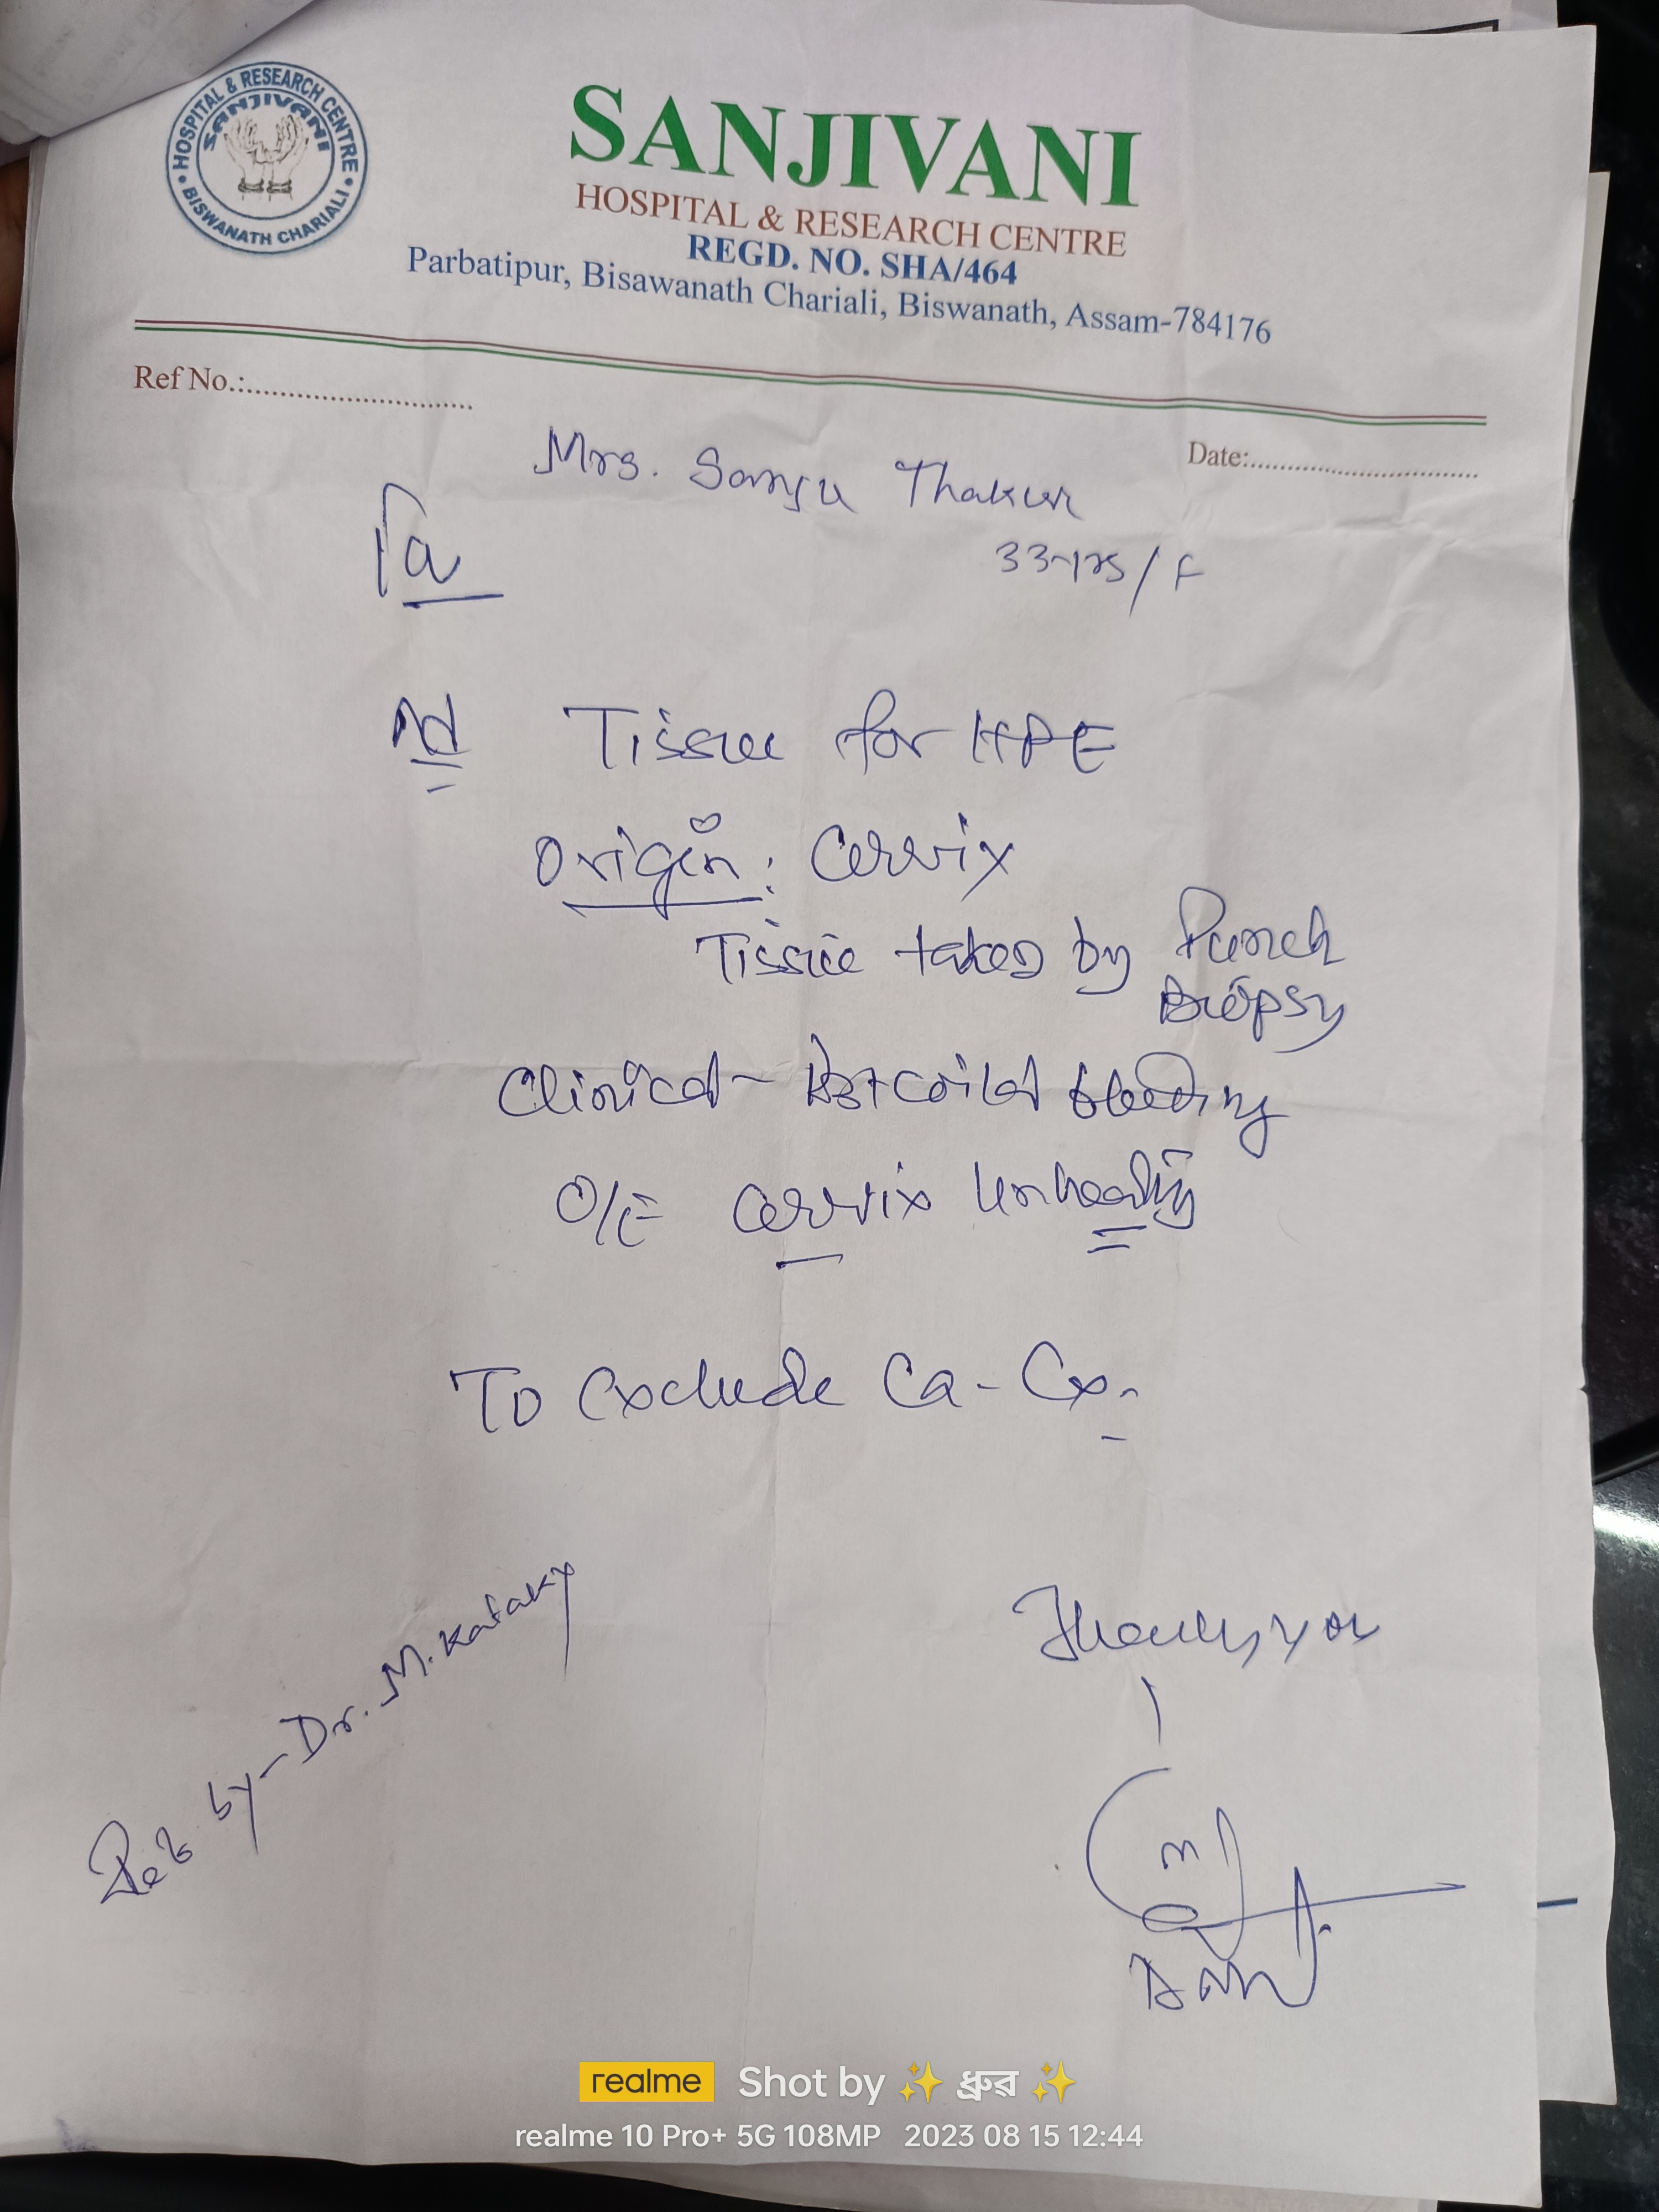 HOSPITAL & RESEARCH CENTRE
SANJIVANI
BISWANATH CHARIALI
SANJIVANI
HOSPITAL & RESEARCH CENTRE
REGD. NO. SHA/464
Parbatipur, Bisawanath Chariali, Biswanath, Assam-784176
Ref No.:
Date:
Mrs. Sanju Thakur
33yrs/F
Tissue for HPE
Origin: Cervix
Tissue taken by Punch
Biopsy
Clinical - Postcoital bleeding
O/E Cervix Unhealthy
To Exclude Ca-Cx.
Thank you
Ref by - Dr. M. Kataky
realme Shot by ✨ ধ্ৰুৱ ✨
realme 10 Pro+ 5G 108MP 2023 08 15 12:44